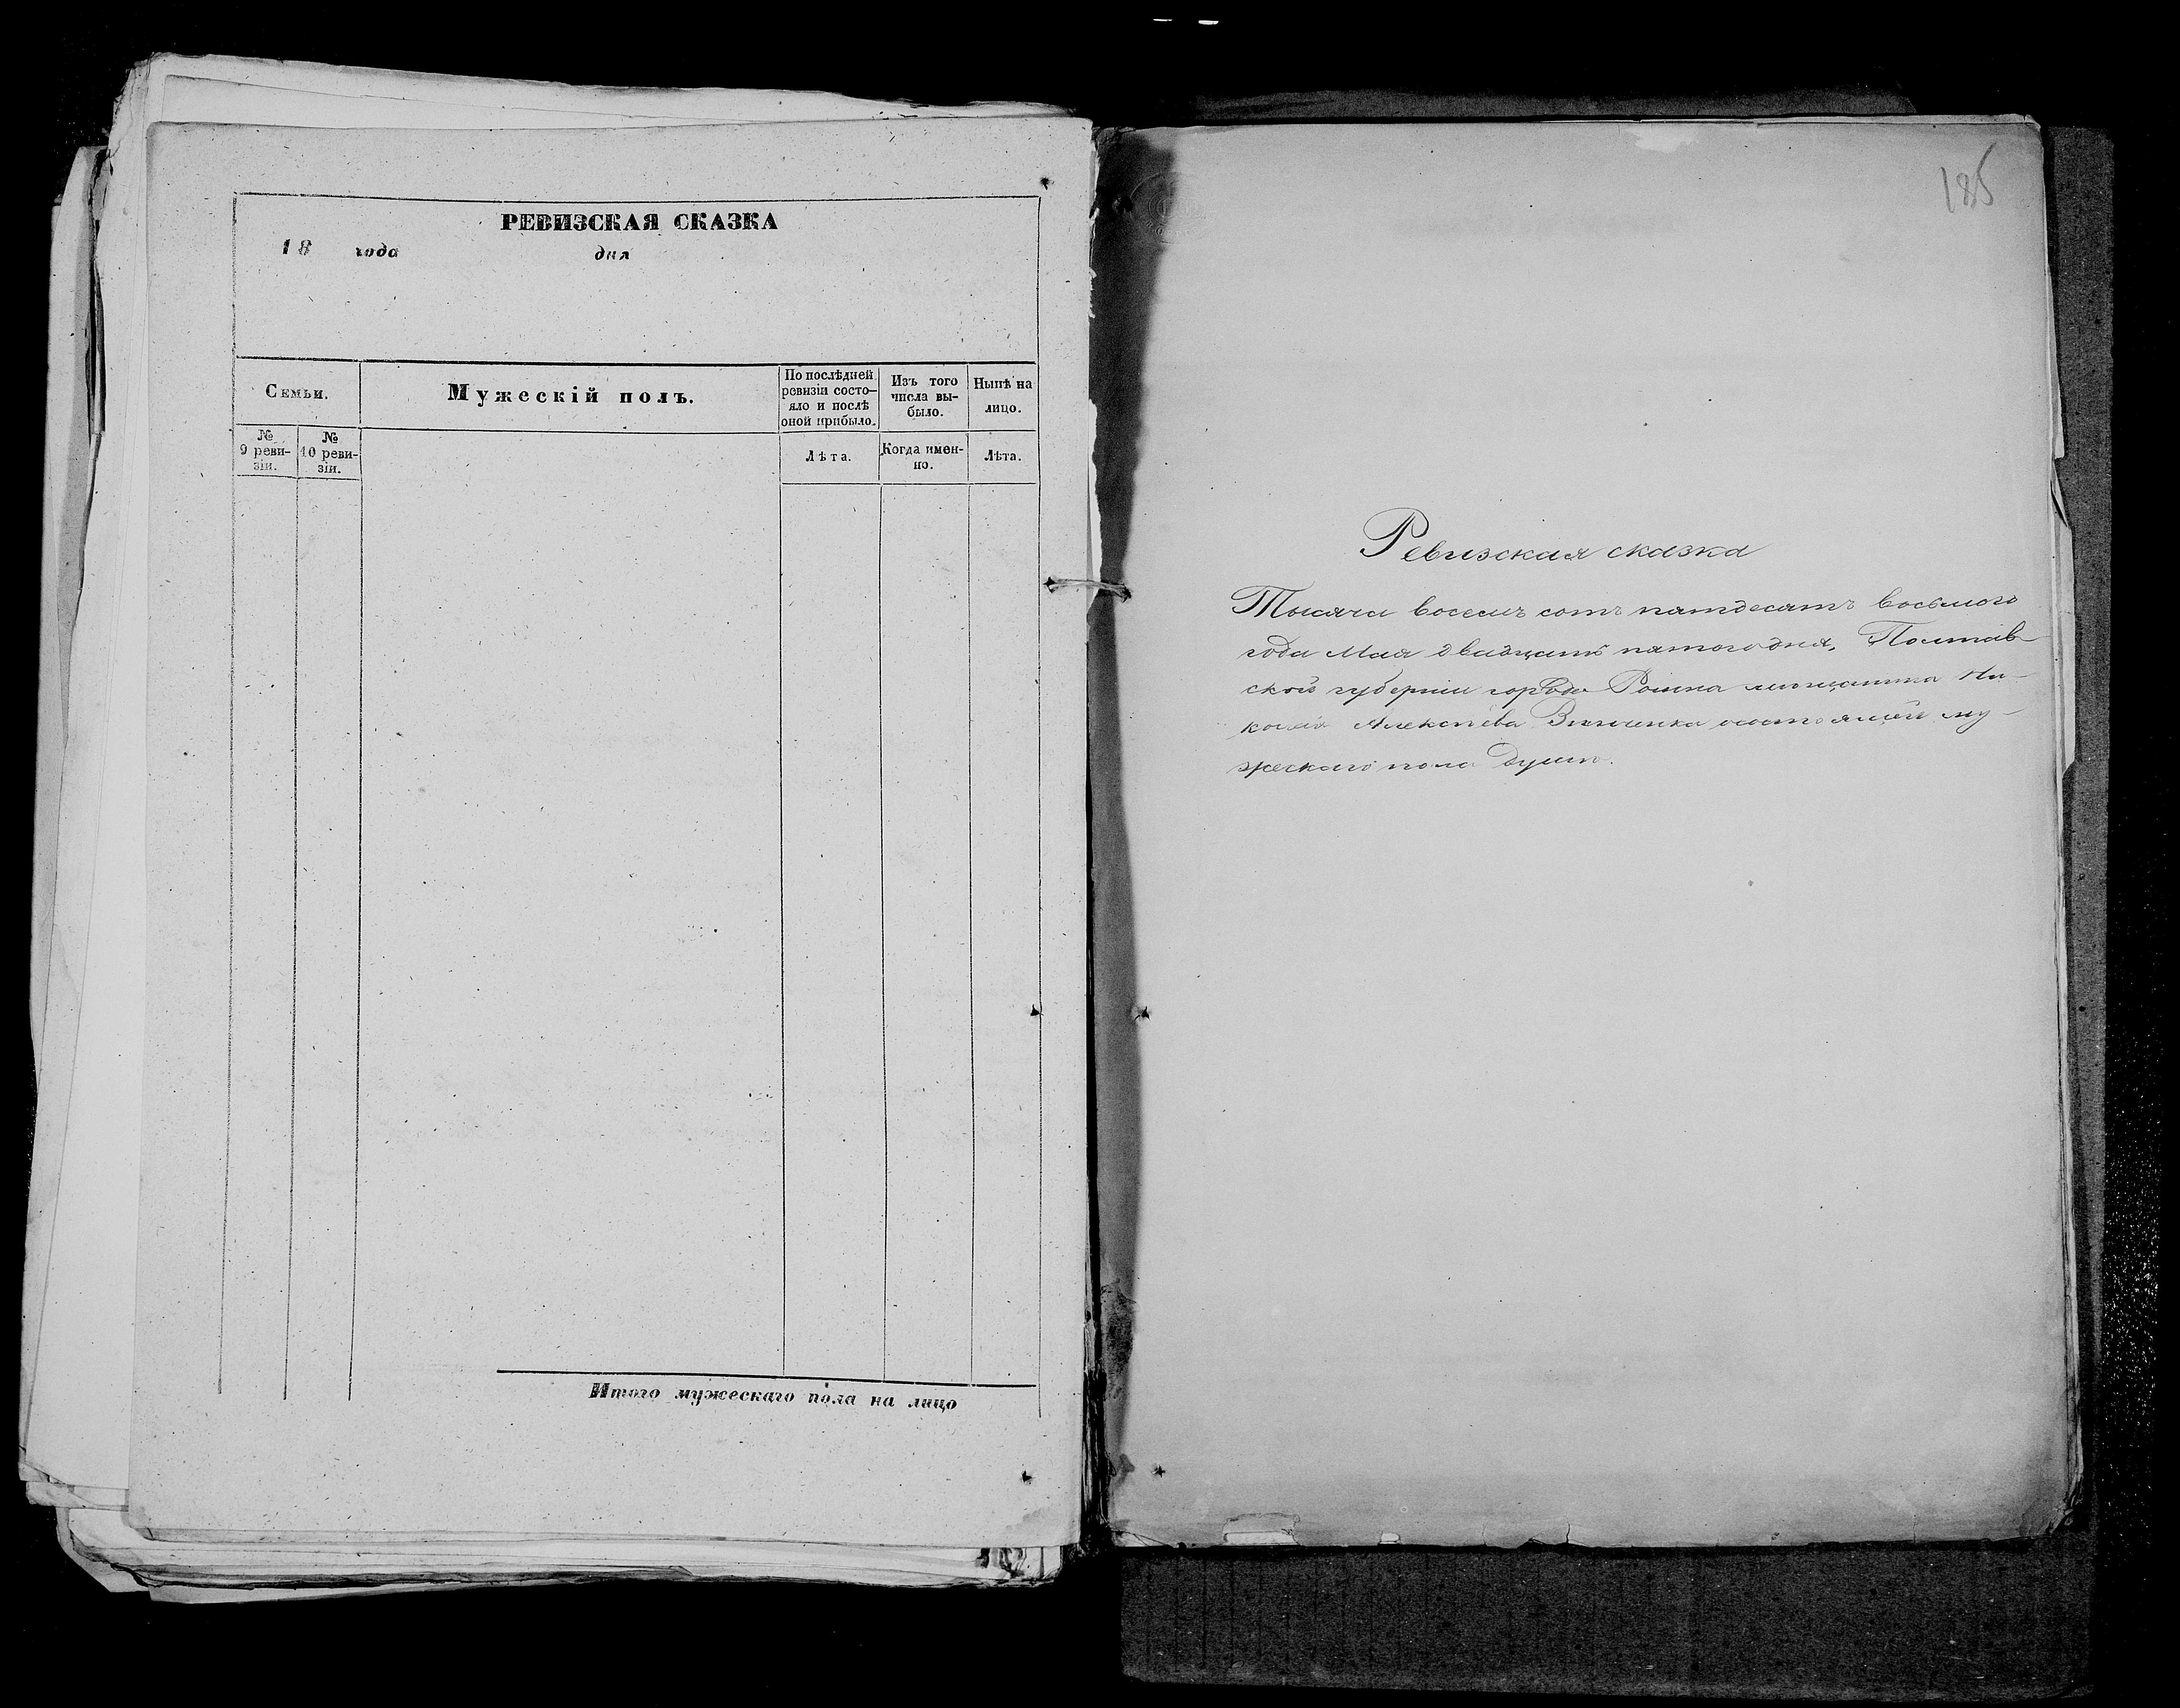 РЕВИЗСКАЯ СКАЗКА
18 года дня
Семьи.
Мужескій полъ.
По послѣдней ревизіи состо-
яло и послѣ
оной прибыло.
Изъ того
числа вы-
было.
Нынѣ на
лицо.
№
9 реви-
зіи.
№
10 реви-
зіи.
Лѣта.
Когда имен-
но.
Лѣта.
Итого мужескаго пола на лицо
185
Ревизская сказка
Тысяча восемь сотъ пятдесятъ восьмого
года Мая двадцать пятого дня, Полтав-
ской губерніи города Ромна мещанина Ни-
колая Алексѣева му-
жескаго пола душъ.